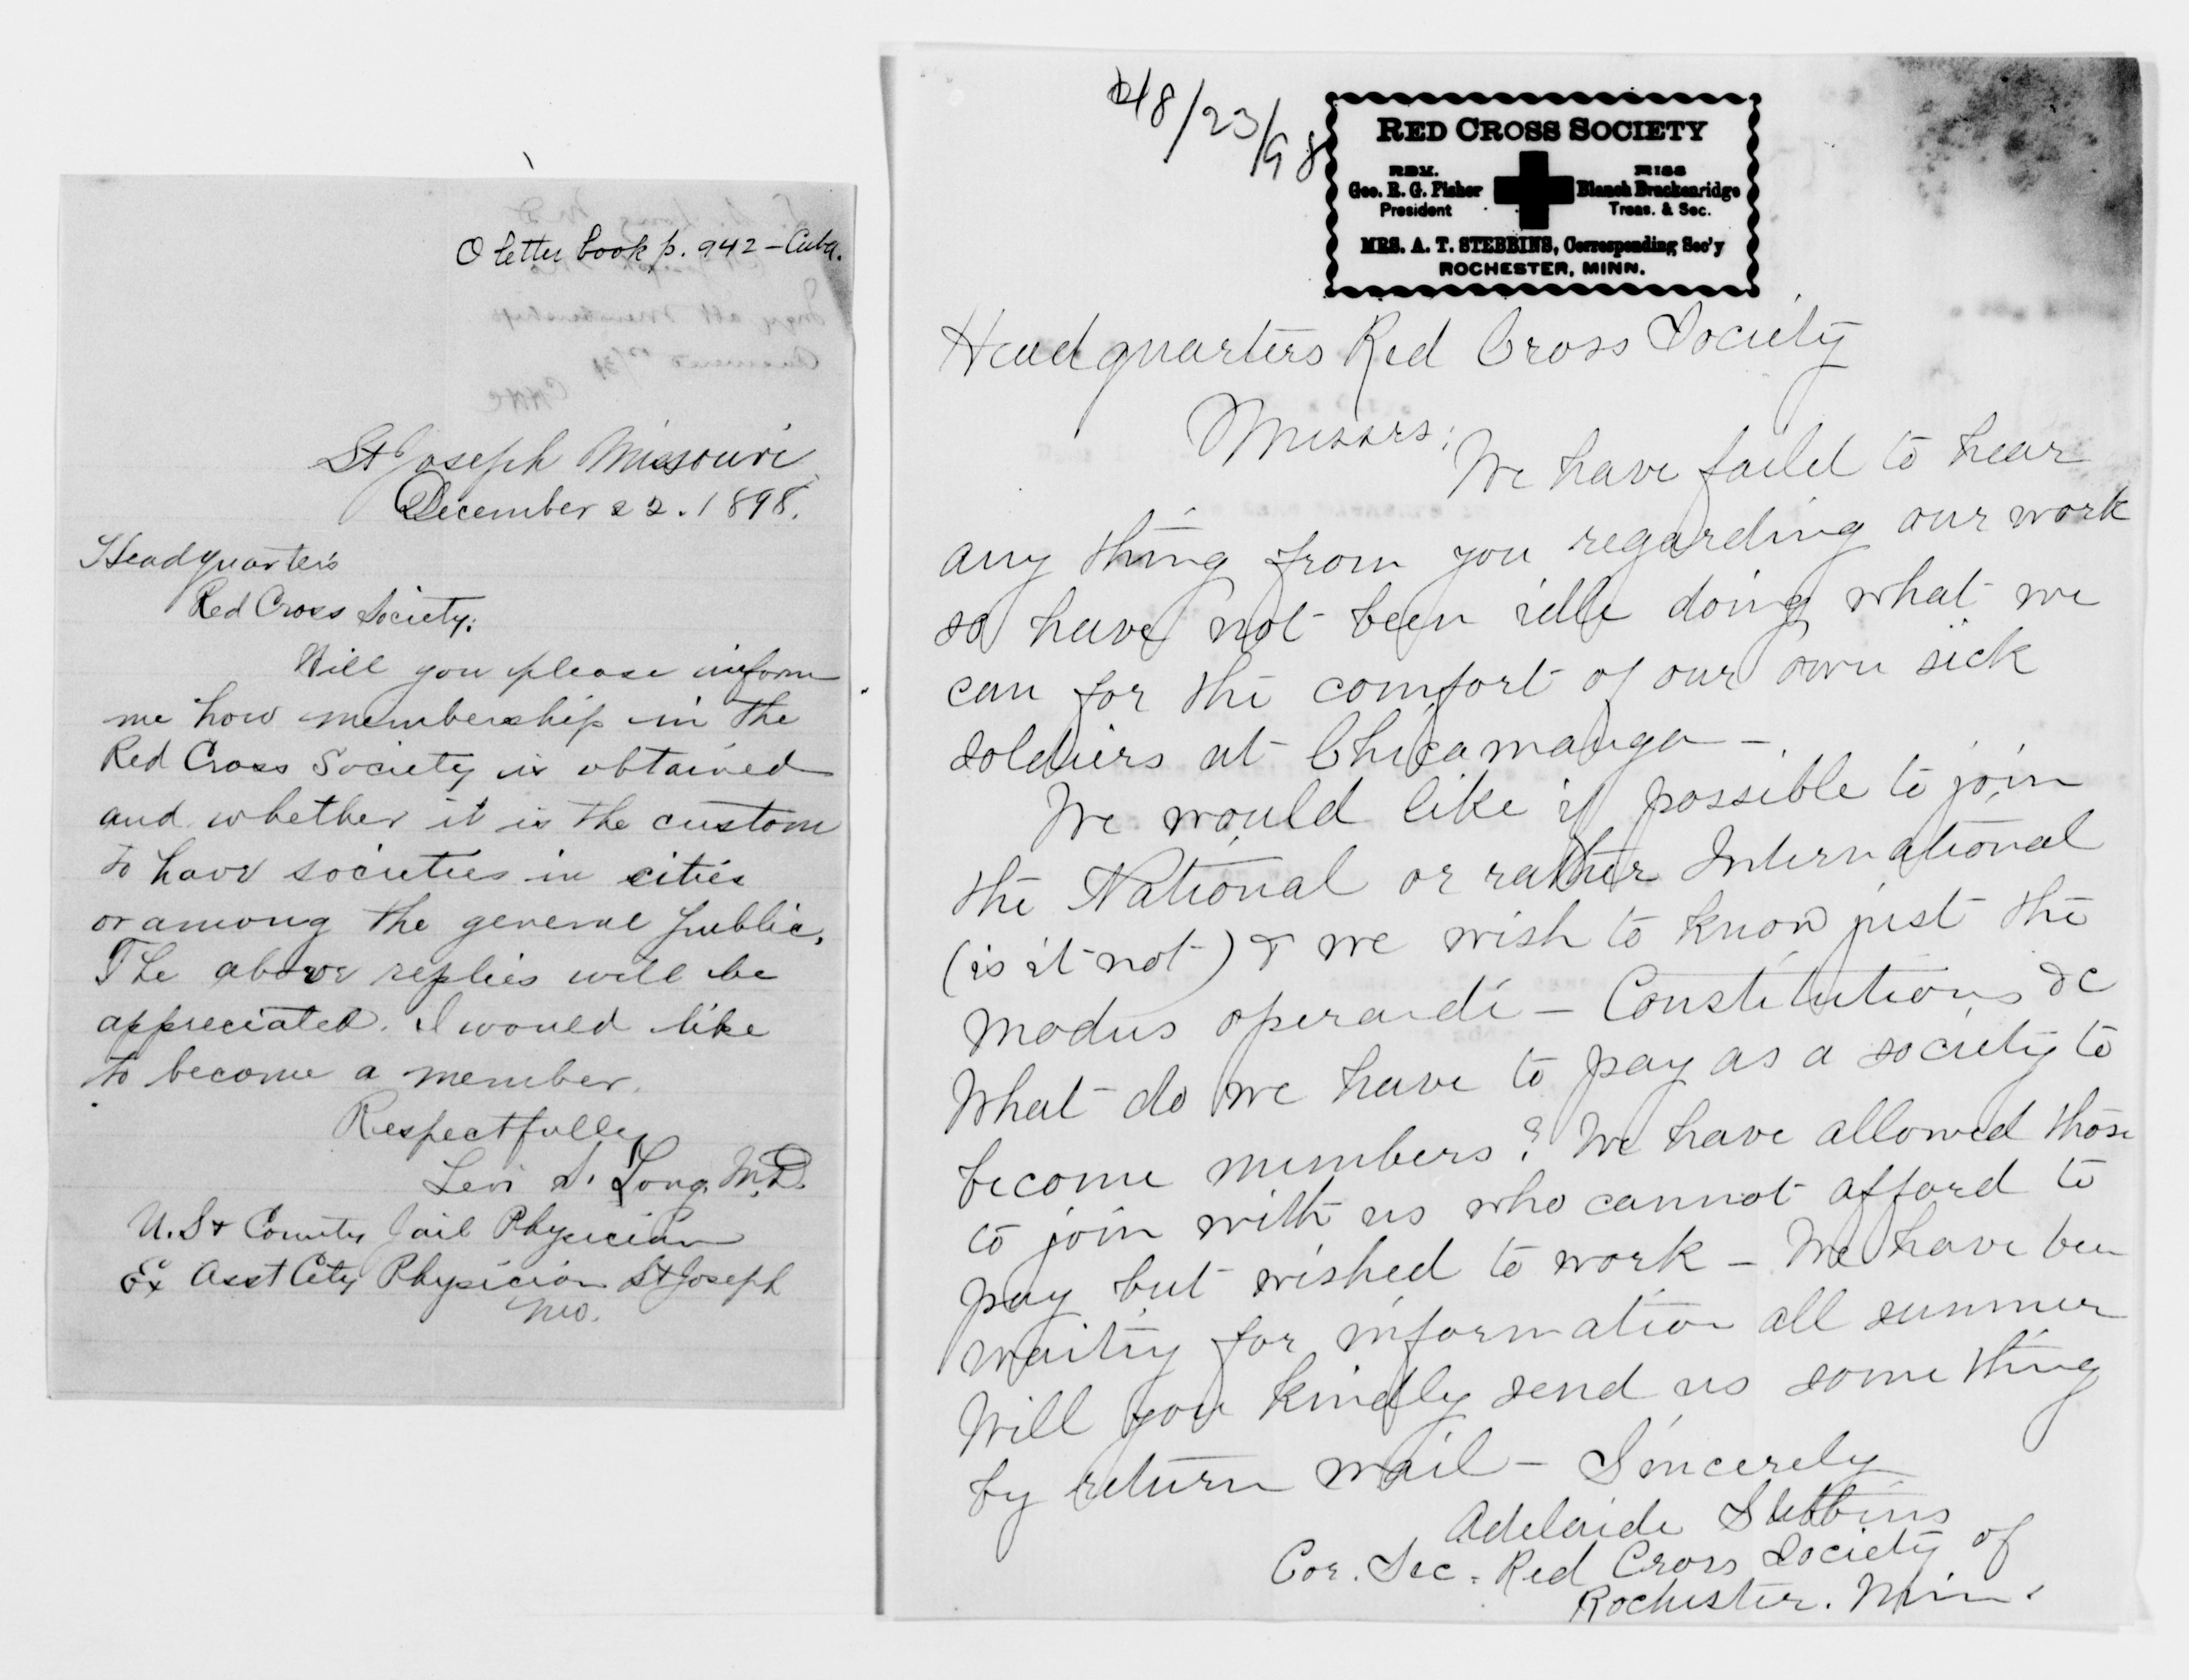 O letter book p. 942 - Cuba.
St Joseph Missouri
December 22. 1898.
Headquarters
Red Cross Society:
Will you please inform
me how membership in the
Red Cross Society is obtained
and whether it is the custom
to have societies in cities
or among the general public.
The above replies will be
appreciated. I would like
to become a member.
Respectfully
Levi S. Long. M.D.
U.S. & County Jail Physician
Ex Asst City Physician St Joseph
Mo.
8/23/98
RED CROSS SOCIETY
REV. MISS
Geo. R. G. Fisher Blanch Brackenridge
President Treas. & Sec.
MRS. A. T. STEBBINS, Corresponding Sec'y
ROCHESTER, MINN.
Headquarters Red Cross Society
Messrs:
We have faild to hear
any thing from you regarding our work
so have not been idle doing what we
can for the comfort of our own sick
soldiers at Chicamauga -
We would like if possible to join
the National or rather International
(is it not) & we wish to know just the
modus operandi - Constitutions &c
What do we have to pay as a society to
become members? We have allowed those
to join with us who cannot afford to
pay but wished to work - We have been
waiting for information all summer
Will you kindly send us some thing
by return mail - Sincerely
Adelaide Stebbins
Cor. Sec. Red Cross Society of
Rochester. Minn.